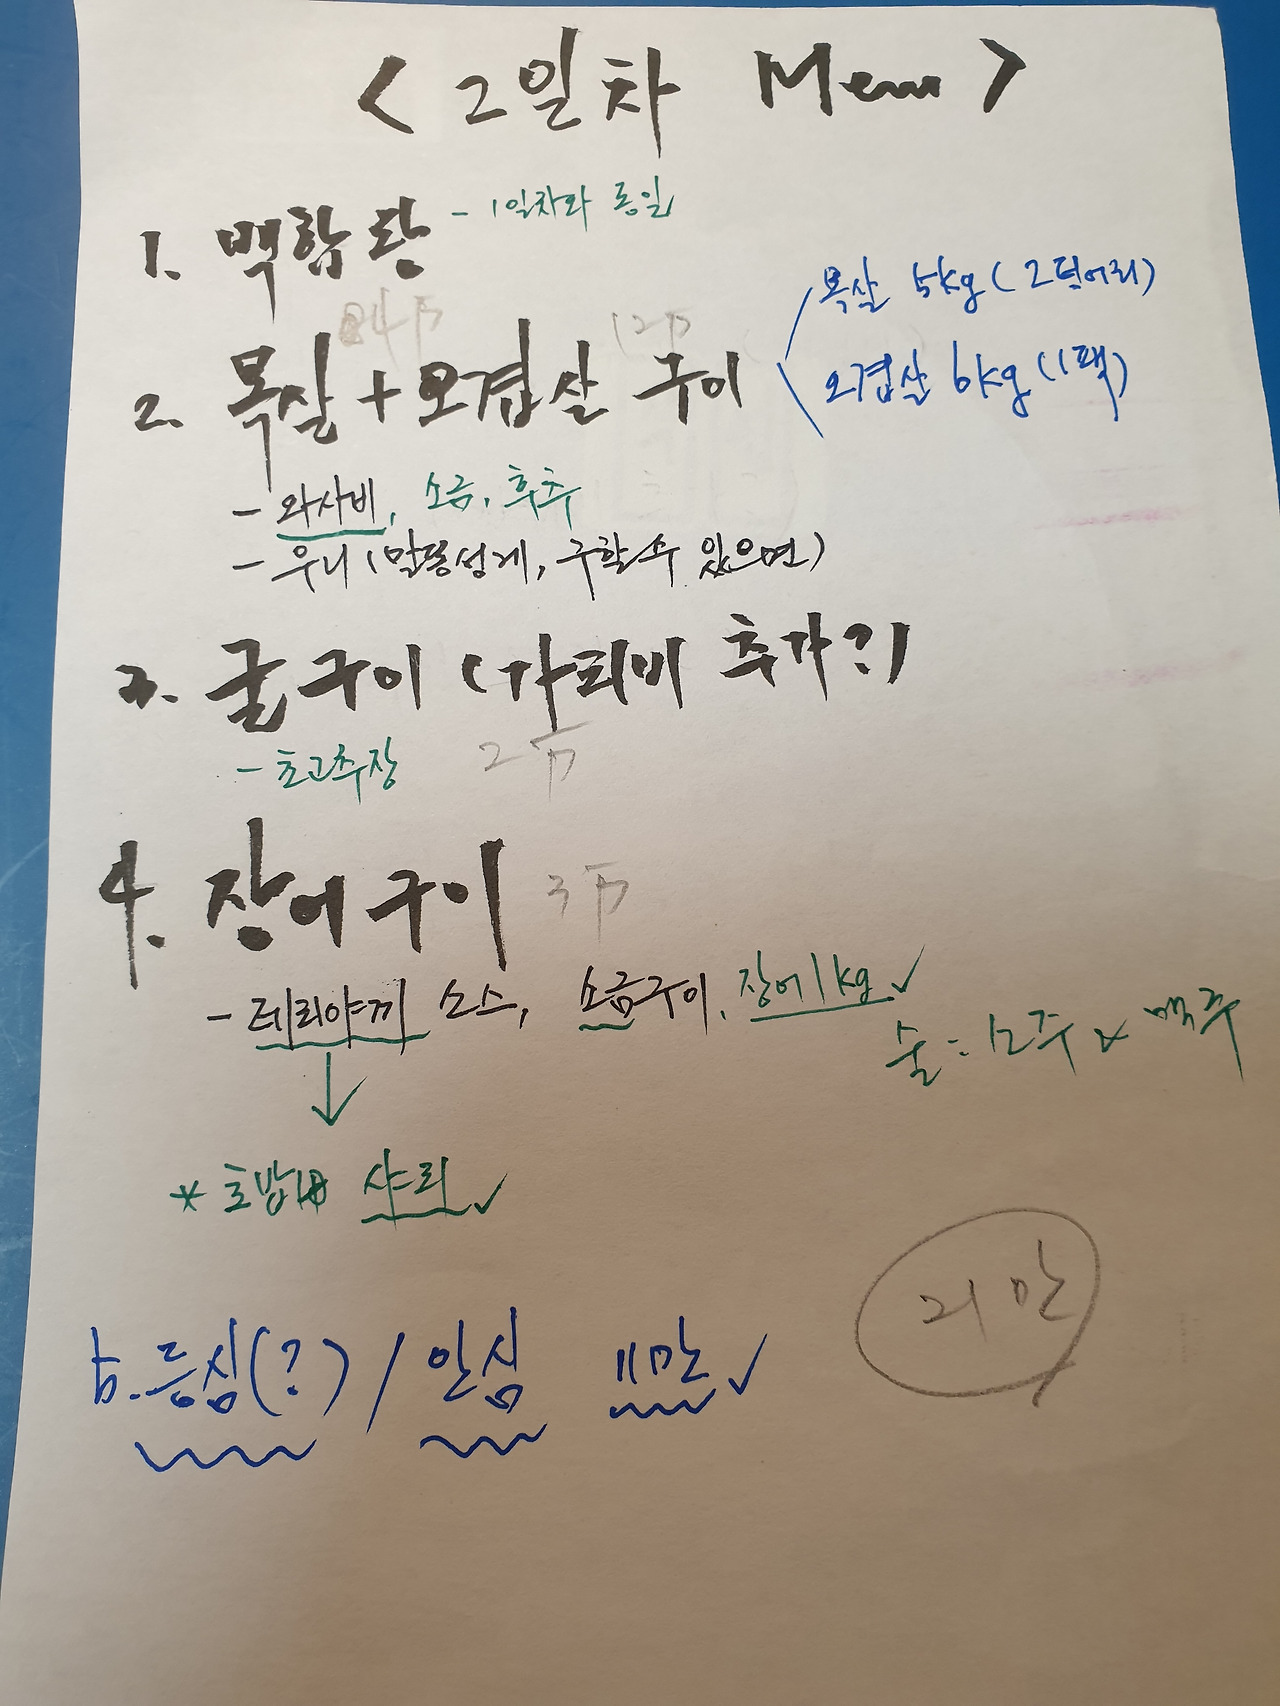 < 2일차 Menu >
1. 백합탕 - 1일차와 동일
2. 목살 + 오겹살 구이
목살 5kg (2덩어리)
오겹살 6kg (1팩)
- 와사비, 소금, 후추
- 우니 (말똥성게, 구할 수 있으면)
3. 굴구이 (가리비 추가?)
- 초고추장
4. 장어구이
- 데리야끼 소스, 소금구이, 장어 1kg ✓
술 = 소주 x 맥주
* 초밥 샤리 ✓
5. 등심(?) / 안심 11만 ✓